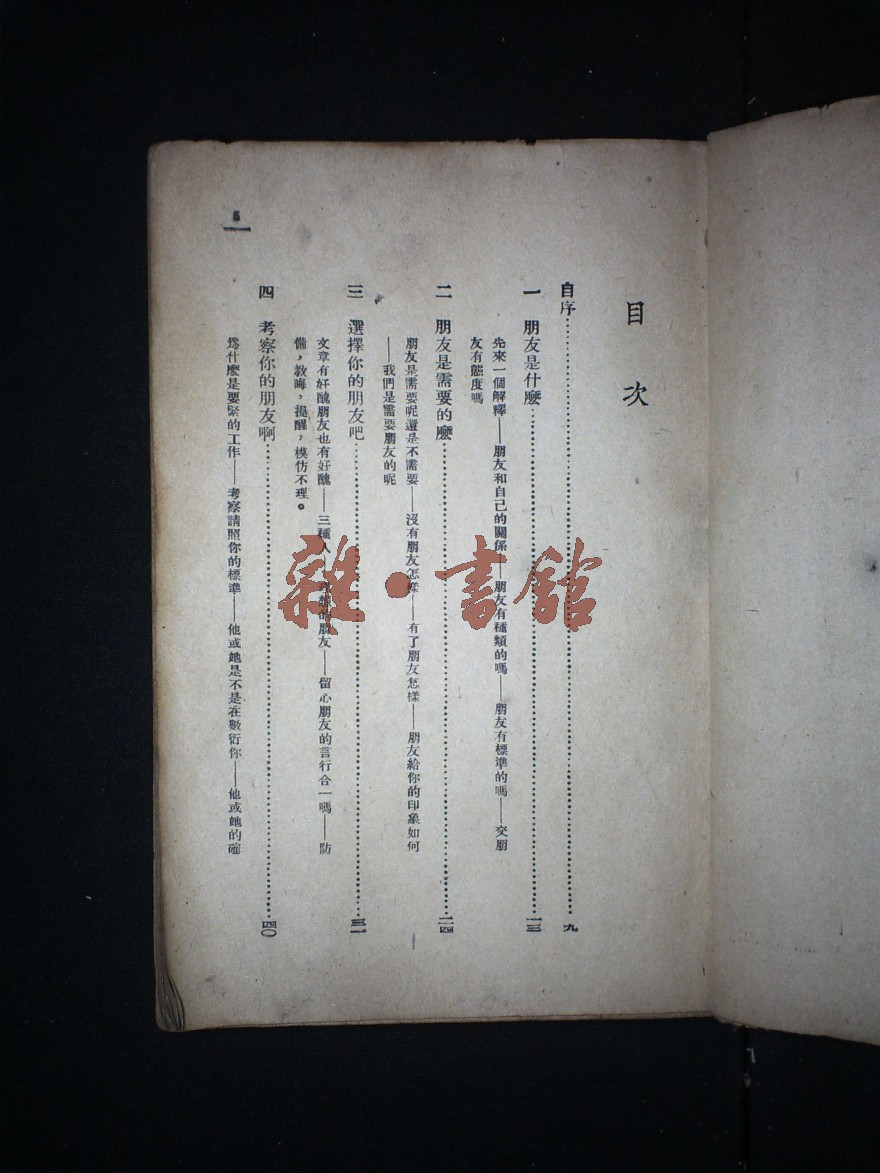 目次
自序……九
一 朋友是什麽……一三
先來一個解釋——朋友和自己的關係——朋友有種類的嗎——朋友有標準的嗎——交朋
友有態度嗎
二 朋友是需要的麽……二四
朋友是需要呢還是不需要——沒有朋友怎樣——有了朋友怎樣——朋友給你的印象如何
——我們是需要朋友的呢
三 選擇你的朋友吧……三一
文章有好醜朋友也有好醜——三種人——理想的朋友——留心朋友的言行合一嗎——防
備，教誨，提醒，模仿不理。
四 考察你的朋友啊……四〇
爲什麽是要緊的工作——考察請照你的標準——他或她是不是在敷衍你——他或她的確
5
雜·書館